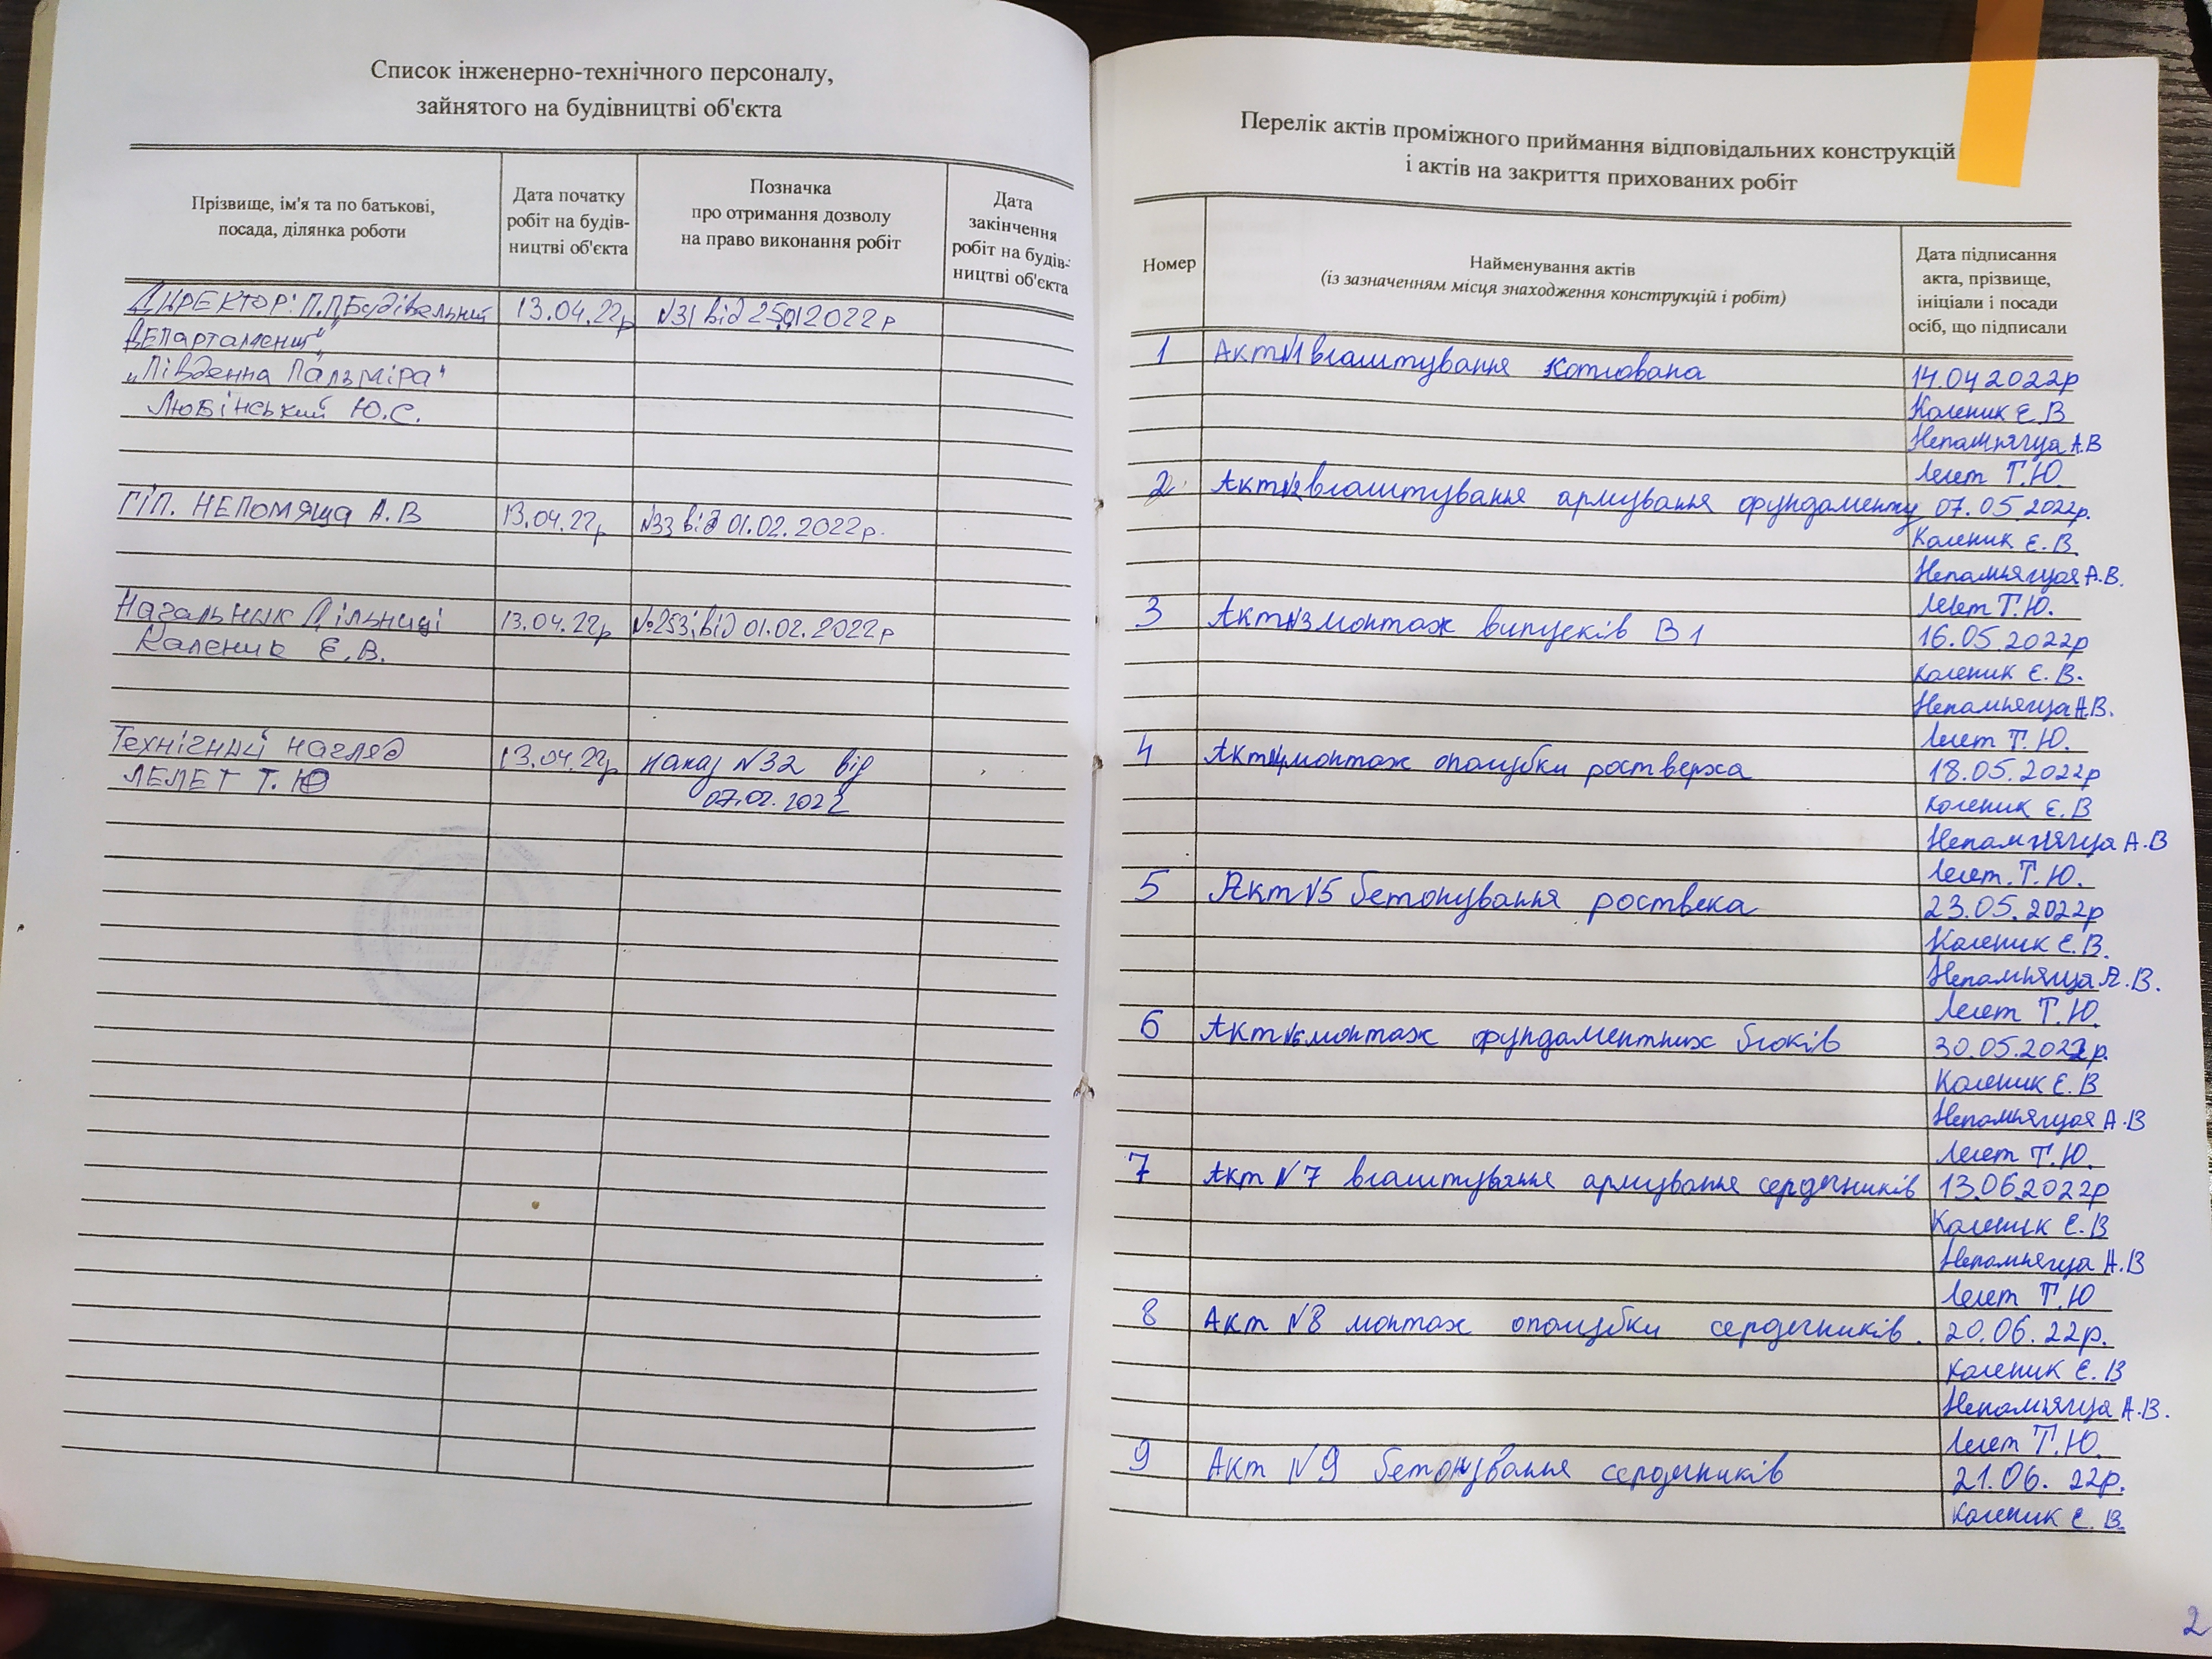 Список інженерно-технічного персоналу,
зайнятого на будівництві об'єкта
Прізвище, ім'я та по батькові,
посада, ділянка роботи
Дата початку
робіт на будів-
ництві об'єкта
Позначка
про отримання дозволу
на право виконання робіт
Дата
закінчення
робіт на будів-
ництві об'єкта
ДИРЕКТОР: П.П,,Будівельний 13.04.22р №31 від 25.01 2022р
Департамент"
„Південна Пальміра"
Любінський Ю.С.
ГІП. НЕПОМЯЩА А.В 13.04.22р №33 від 01.02.2022р.
Начальник Дільниці 13.04.22р №253 від 01.02.2022р
Каленик Є.В.
Технічний нагляд 13.04.22р наказ №32 від
ЛЕЛЕТ Т.Ю 07.02.2022
Перелік актів проміжного приймання відповідальних конструкцій
і актів на закриття прихованих робіт
Номер
Найменування актів
(із зазначенням місця знаходження конструкцій і робіт)
Дата підписання
акта, прізвище,
ініціали і посади
осіб, що підписали
1 Акт№1 влаштування котлована 14.04 2022р
Каленик Є.В
Непамнягща А.В
Лелет Т.Ю.
2 Акт№2 влаштування армування фундаменту 07.05.2022р.
Каленик Є.В.
Непамнягща А.В.
Лелет Т.Ю.
3 Акт№3 монтаж випусків В1 16.05.2022р
Каленик Є.В.
Непамнягща А.В.
Лелет Т.Ю.
4 Акт№4 монтаж опалубки ростверха 18.05.2022р
Каленик Є.В
Непамнягща А.В
Лелет. Т.Ю.
5 Акт№5 бетонування роствека 23.05.2022р
Каленик Є.В.
Непамнягща А.В.
Лелет Т.Ю.
6 Акт№6 монтаж фундаментних блоків 30.05.2022р.
Каленик Є.В
Непамнягща А.В
Лелет Т.Ю.
7 Акт №7 влаштування армування сердечників 13.06.2022р
Каленик Є.В
Непамнягща А.В
Лелет Т.Ю
8 Акт №8 монтаж опалубки сердечників. 20.06.22р.
Каленик Є.В
Непамнягща А.В.
Лелет Т.Ю.
9 Акт №9 бетонування сердечників 21.06. 22р.
Каленик Є.В.
2